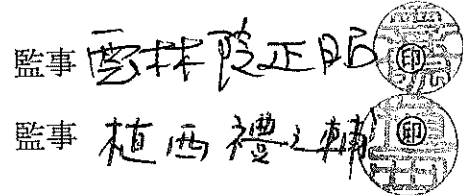 監事 雲林院正昭 ㊞
監事 植西禮之輔 ㊞